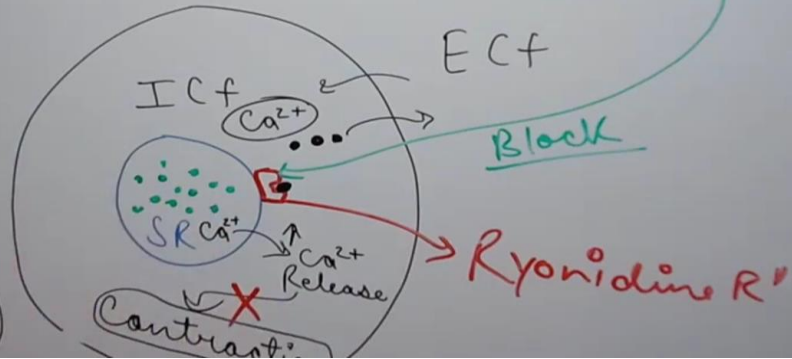 ECf
ICf
Ca²⁺
Block
SR Ca²⁺
↑ Ca²⁺
Release
Ryonidine R'
Contracti